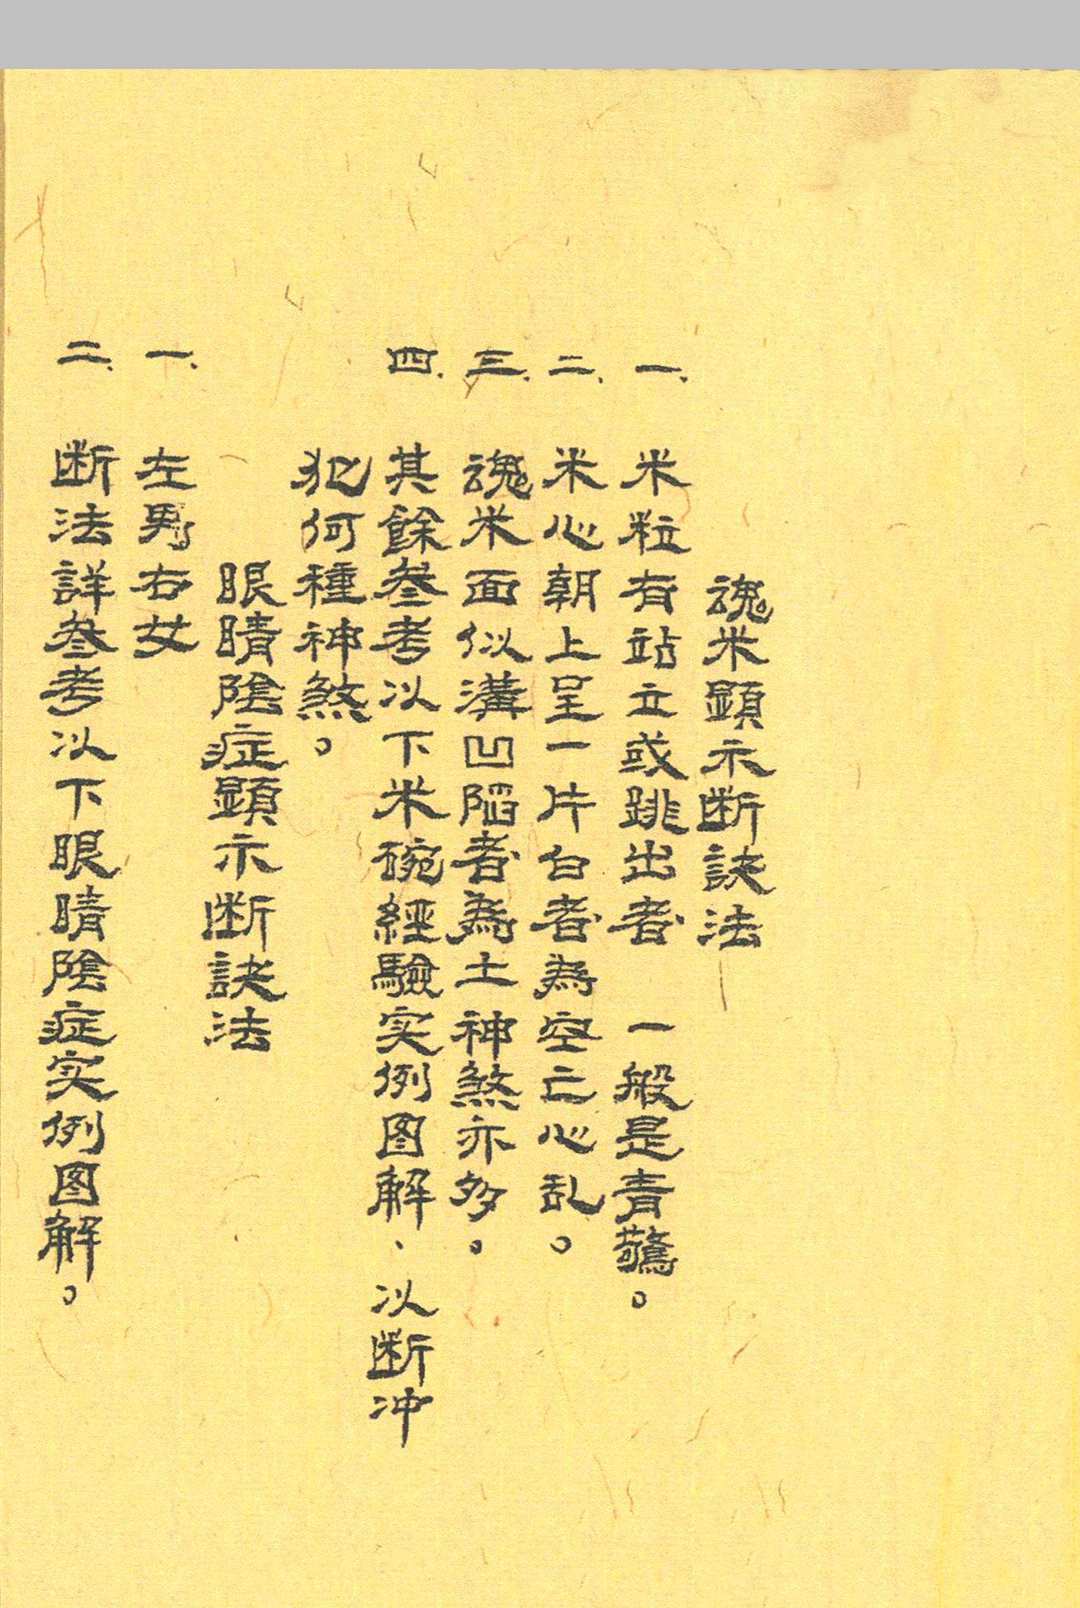 魂米顕示断訣法
一.米粒有站立或跳出者 一般是青驚。
二.米心朝上呈一片白者為空亡心乱。
三.魂米面似溝凹陷者為土神煞亦多。
四.其餘叁考以下米碗經驗实例图解、以断冲
犯何種神煞。
眼睛陰症顕示断訣法
一.左男右女
二.断法詳叁考以下眼睛陰症实例图解。